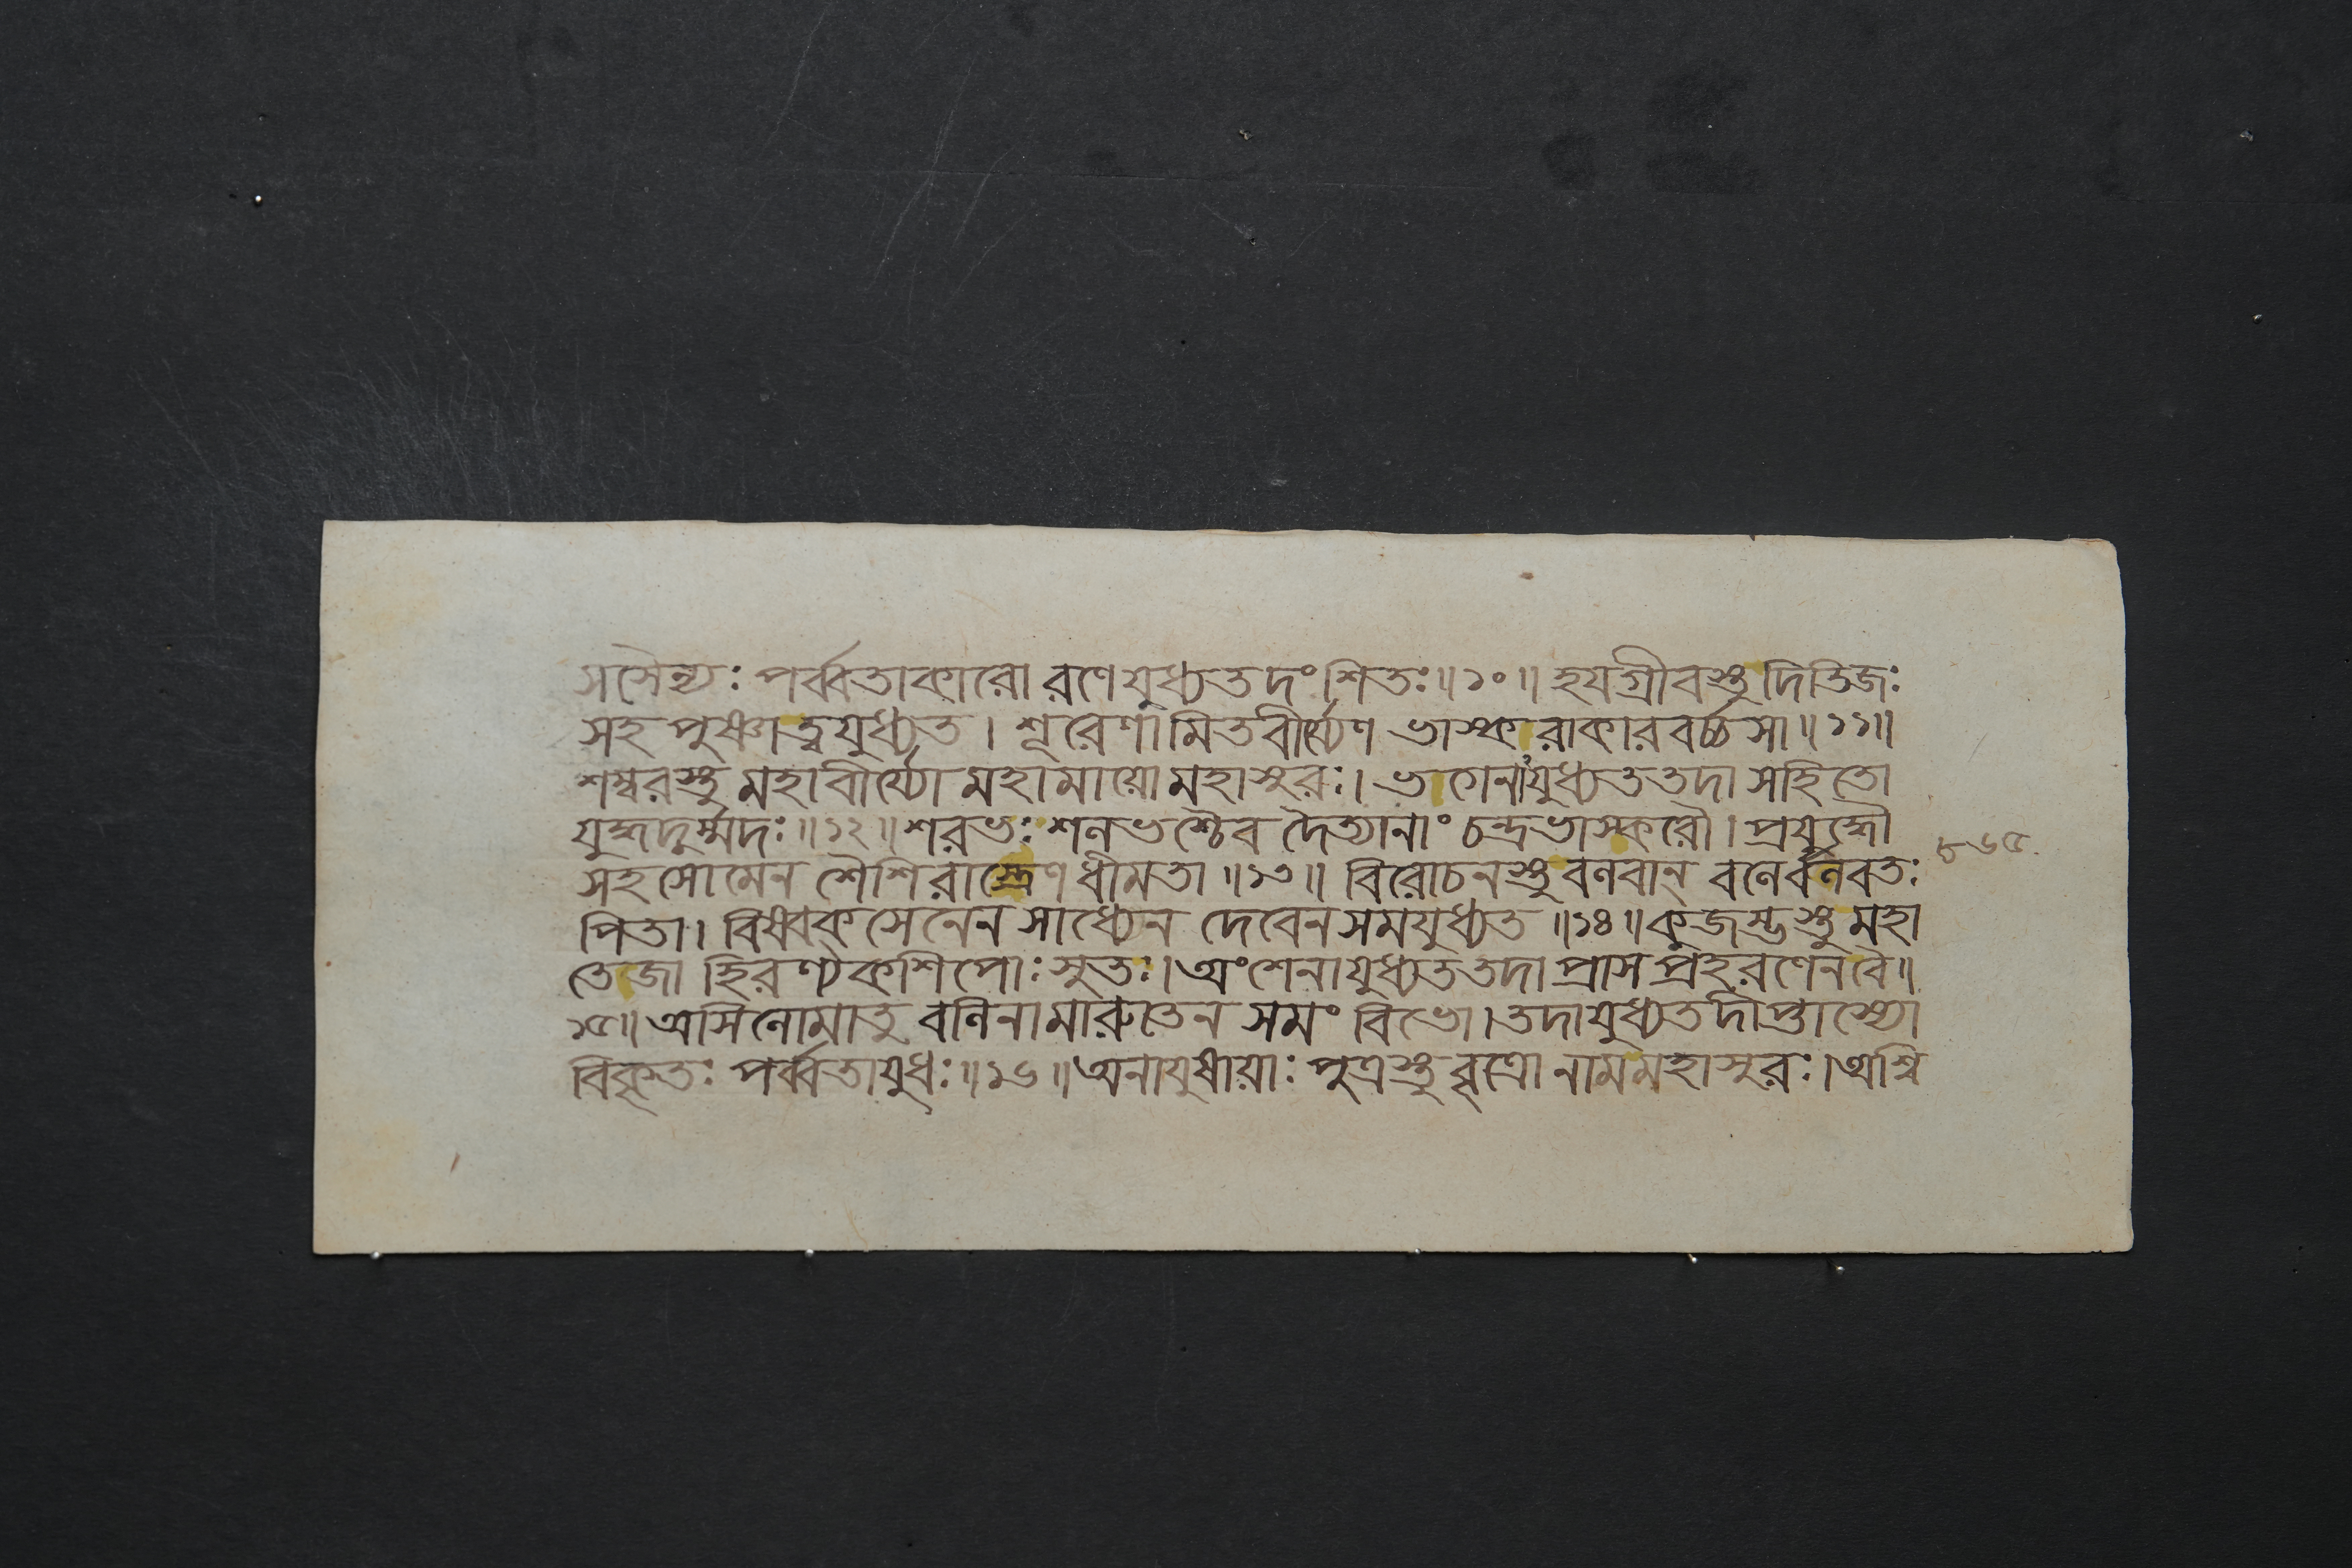 সসৈন্যঃ পর্ব্বতাকারো রণেযুধ্যতদংশিতঃ॥১০॥ হযগ্রীবস্তু দিতিজঃ
সহ পুষ্ণাত্বযুধ্যত। শূরেণামিতবীর্য্যেণ ভাস্করাকারবর্চ্চসা॥১১॥
শম্বরস্তু মহাবীর্য্যো মহামায়ো মহাসুরঃ। ভগেনাযুধ্যততদা সহিতো
যুদ্ধদুর্ম্মদঃ॥১২॥ শরভঃ শলভশ্চৈব দৈত্যানাং চন্দ্রভাস্করৌ। প্রযুদ্ধৌ
সহ সোমেন শৈশিরাস্ত্রেণ ধীমতা॥১৩॥ বিরোচনস্তু বলবান্ বলের্বলবতঃ
পিতা। বিষ্বক্সেনেন সাধ্যেন দেবেন সমযুধ্যত॥১৪॥ কুজম্ভস্তু মহা
তেজা হিরণ্যকশিপোঃ সুতঃ। অংশেনাযুধ্যততদা প্রাস প্রহরণেন বৈ॥
১৫॥ অসিলোমাতু বলিনা মারুতেন সমং বিভো। তদাযুধ্যত দীপ্তাস্যো
বিকৃতঃ পর্ব্বতাযুধঃ॥১৬॥ অনাযুষায়াঃ পুত্রস্তু বৃত্রো নাম মহাসুরঃ। অশ্বি
৮৬৫